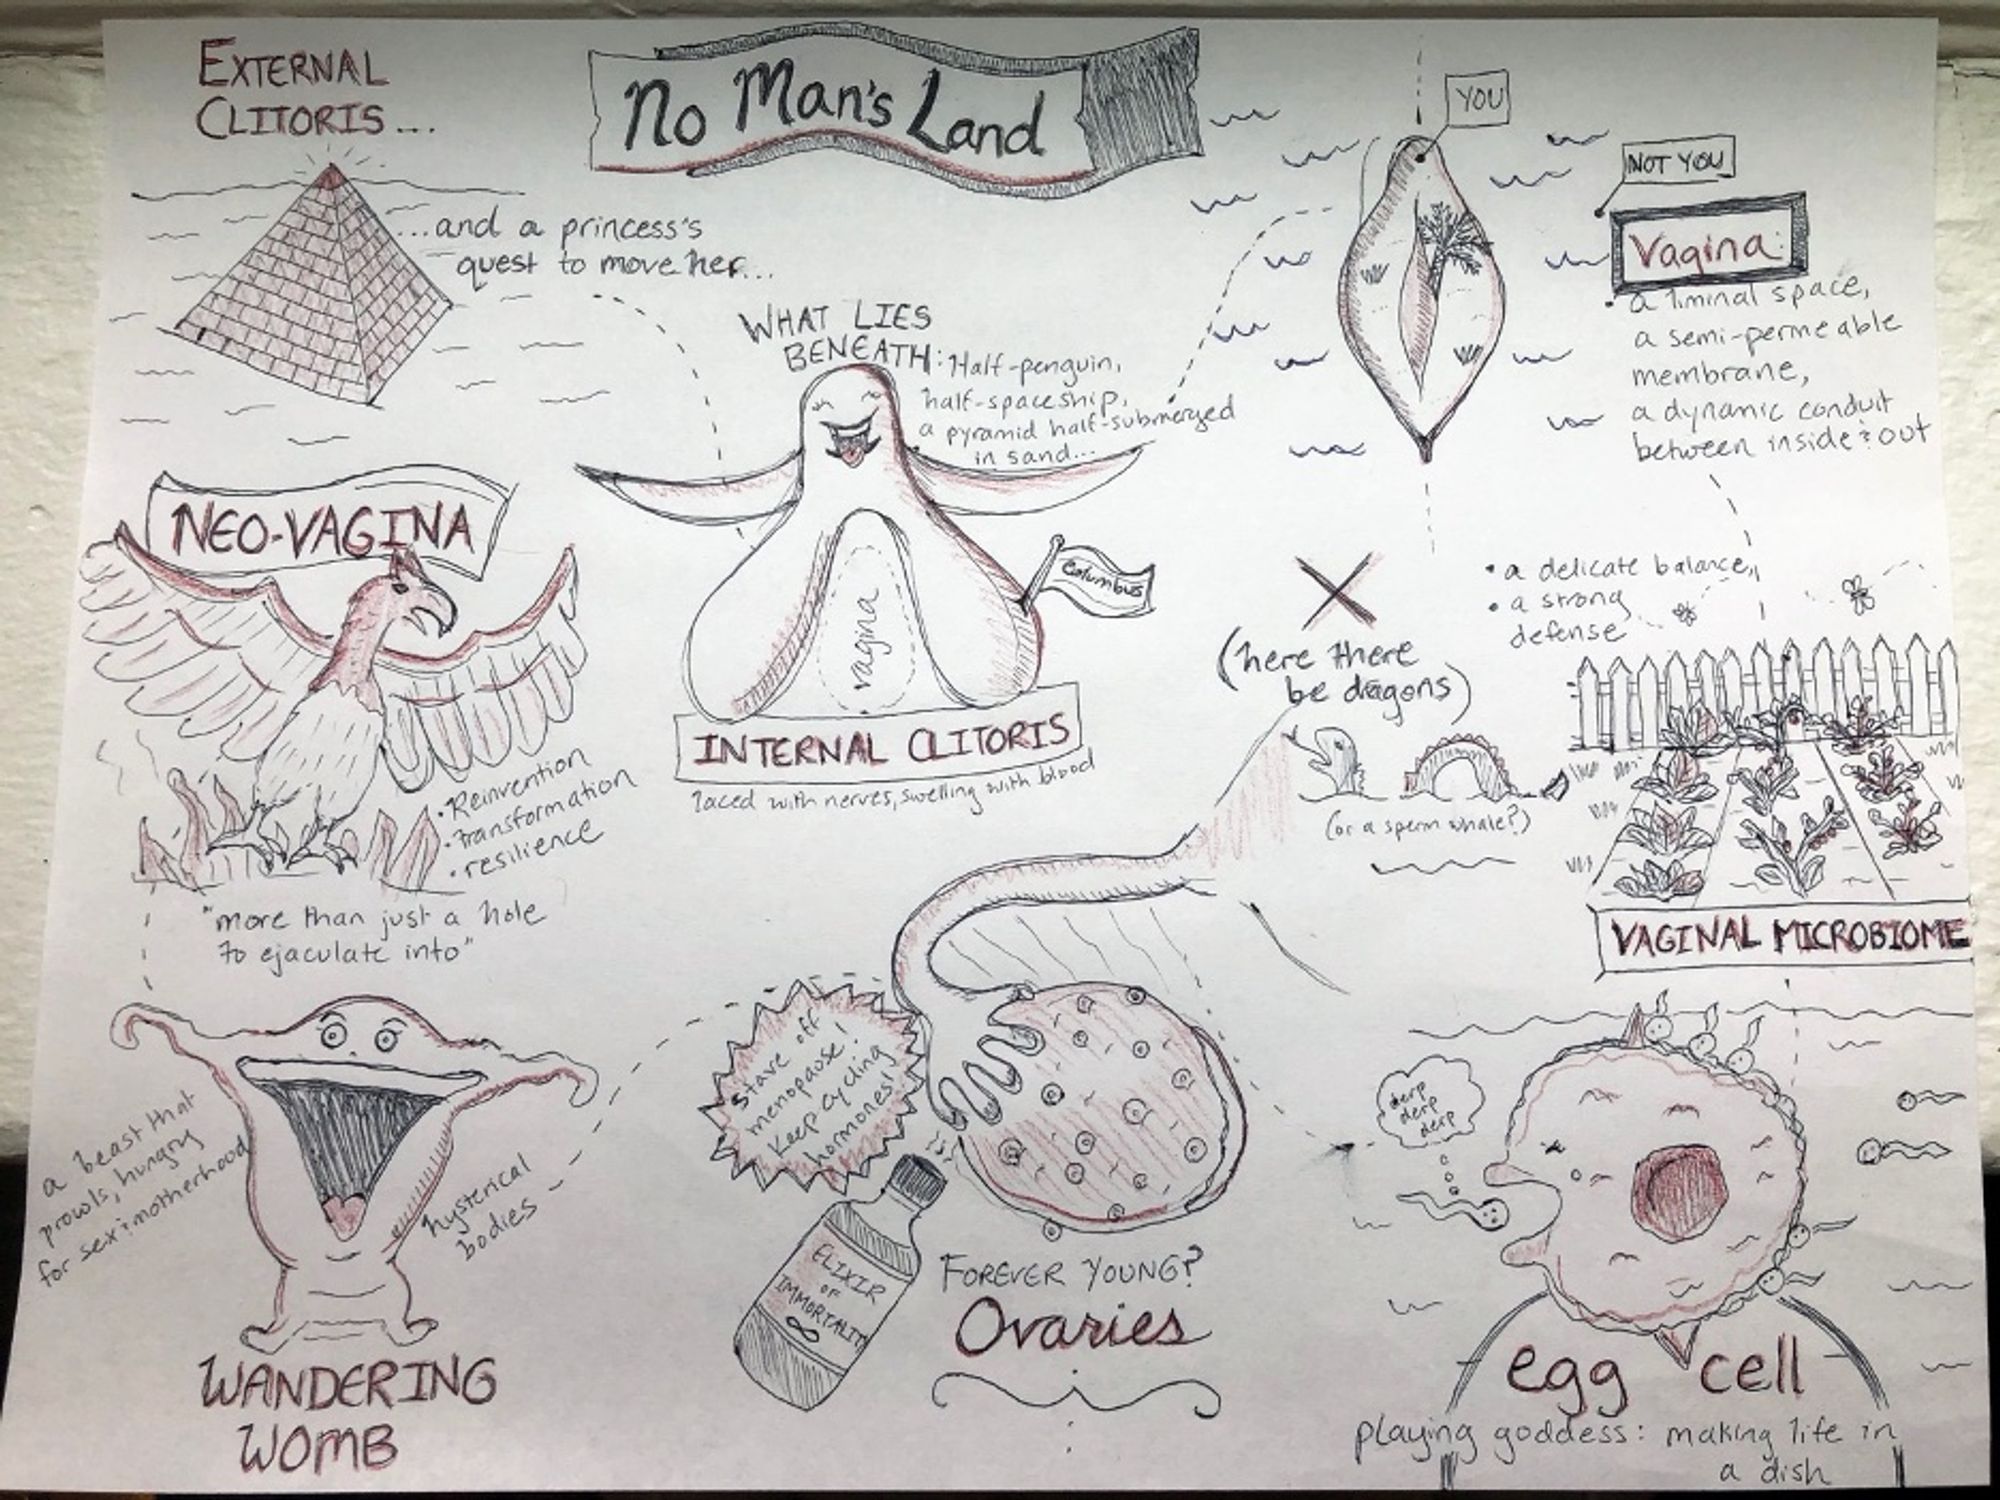 EXTERNAL
CLITORIS...
No Man's Land
YOU
NOT YOU
...and a princess's
quest to move her...
Vagina
a liminal space,
a semi-permeable
membrane,
a dynamic conduit
between inside & out
WHAT LIES
BENEATH:
Half-penguin,
half-spaceship,
a pyramid half-submerged
in sand...
NEO-VAGINA
Columbus
vagina
INTERNAL CLITORIS
laced with nerves, swelling with blood
• a delicate balance,
• a strong
defense
(here there
be dragons)
(or a sperm whale?)
VAGINAL MICROBIOME
• Reinvention
• transformation
• resilience
"more than just a hole
to ejaculate into"
a beast that
prowls, hungry
for sex & motherhood
hysterical
bodies
WANDERING
WOMB
Stave off
menopause!
Keep cycling
hormones!
ELIXIR
OF
IMMORTALITY
∞
FOREVER YOUNG?
Ovaries
derp
derp
derp
egg cell
playing goddess: making life in
a dish